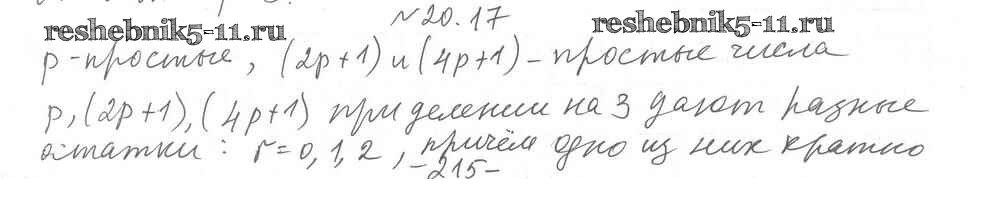 №20.17
reshebnik5-11.ru reshebnik5-11.ru
p-простые, (2p+1) и (4p+1) - простые числа
p, (2p+1), (4p+1) при делении на 3 дают разные
остатки: r=0,1,2, причём одно из них кратно
-215-